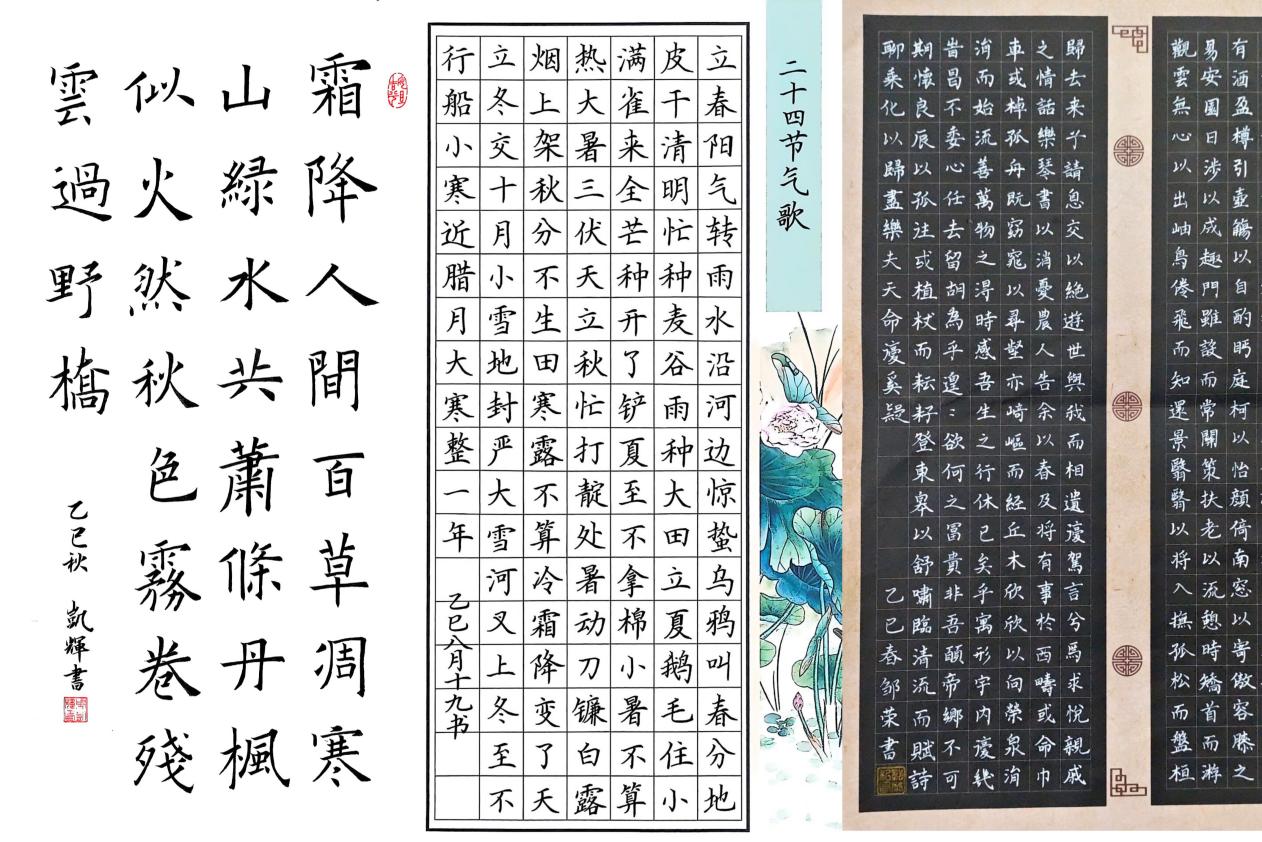 霜降人間百草凋寒
山緑水共蕭條丹楓
似火然秋色霧卷殘
雲過野橋
乙巳秋 凱輝書
二十四节气歌
立春阳气转雨水沿河边惊蛰乌鸦叫春分地
皮干清明忙种麦谷雨种大田立夏鹅毛住小
满雀来全芒种开了铲夏至不拿棉小暑不算
热大暑三伏天立秋忙打靛处暑动刀镰白露
烟上架秋分不生田寒露不算冷霜降变了天
立冬交十月小雪地封严大雪河叉上冬至不
行船小寒近腊月大寒整一年
乙巳八月十九书
有酒盈樽引壺觴以自酌眄庭柯以怡顏倚南窓以寄傲容膝之
易安園日涉以成趣門雖設而常關策扶老以流憩時矯首而游
觀雲無心以出岫鳥倦飛而知還景翳翳以將入撫孤松而盤桓
歸去来兮請息交以絶遊世與我而相遺復駕言兮焉求悅親戚
之情話樂琴書以消憂農人告余以春及將有事於西疇或命巾
車或棹孤舟既窈窕以尋壑亦崎嶇而經丘木欣欣以向榮泉涓
涓而始流善萬物之得時感吾生之行休已矣乎寓形宇内復幾
旹曷不委心任去留胡為乎遑々欲何之富貴非吾願帝鄉不可
期懷良辰以孤往或植杖而耘耔登東皋以舒嘯臨清流而賦詩
聊乘化以歸盡樂夫天命復奚疑
乙巳春邹荣書